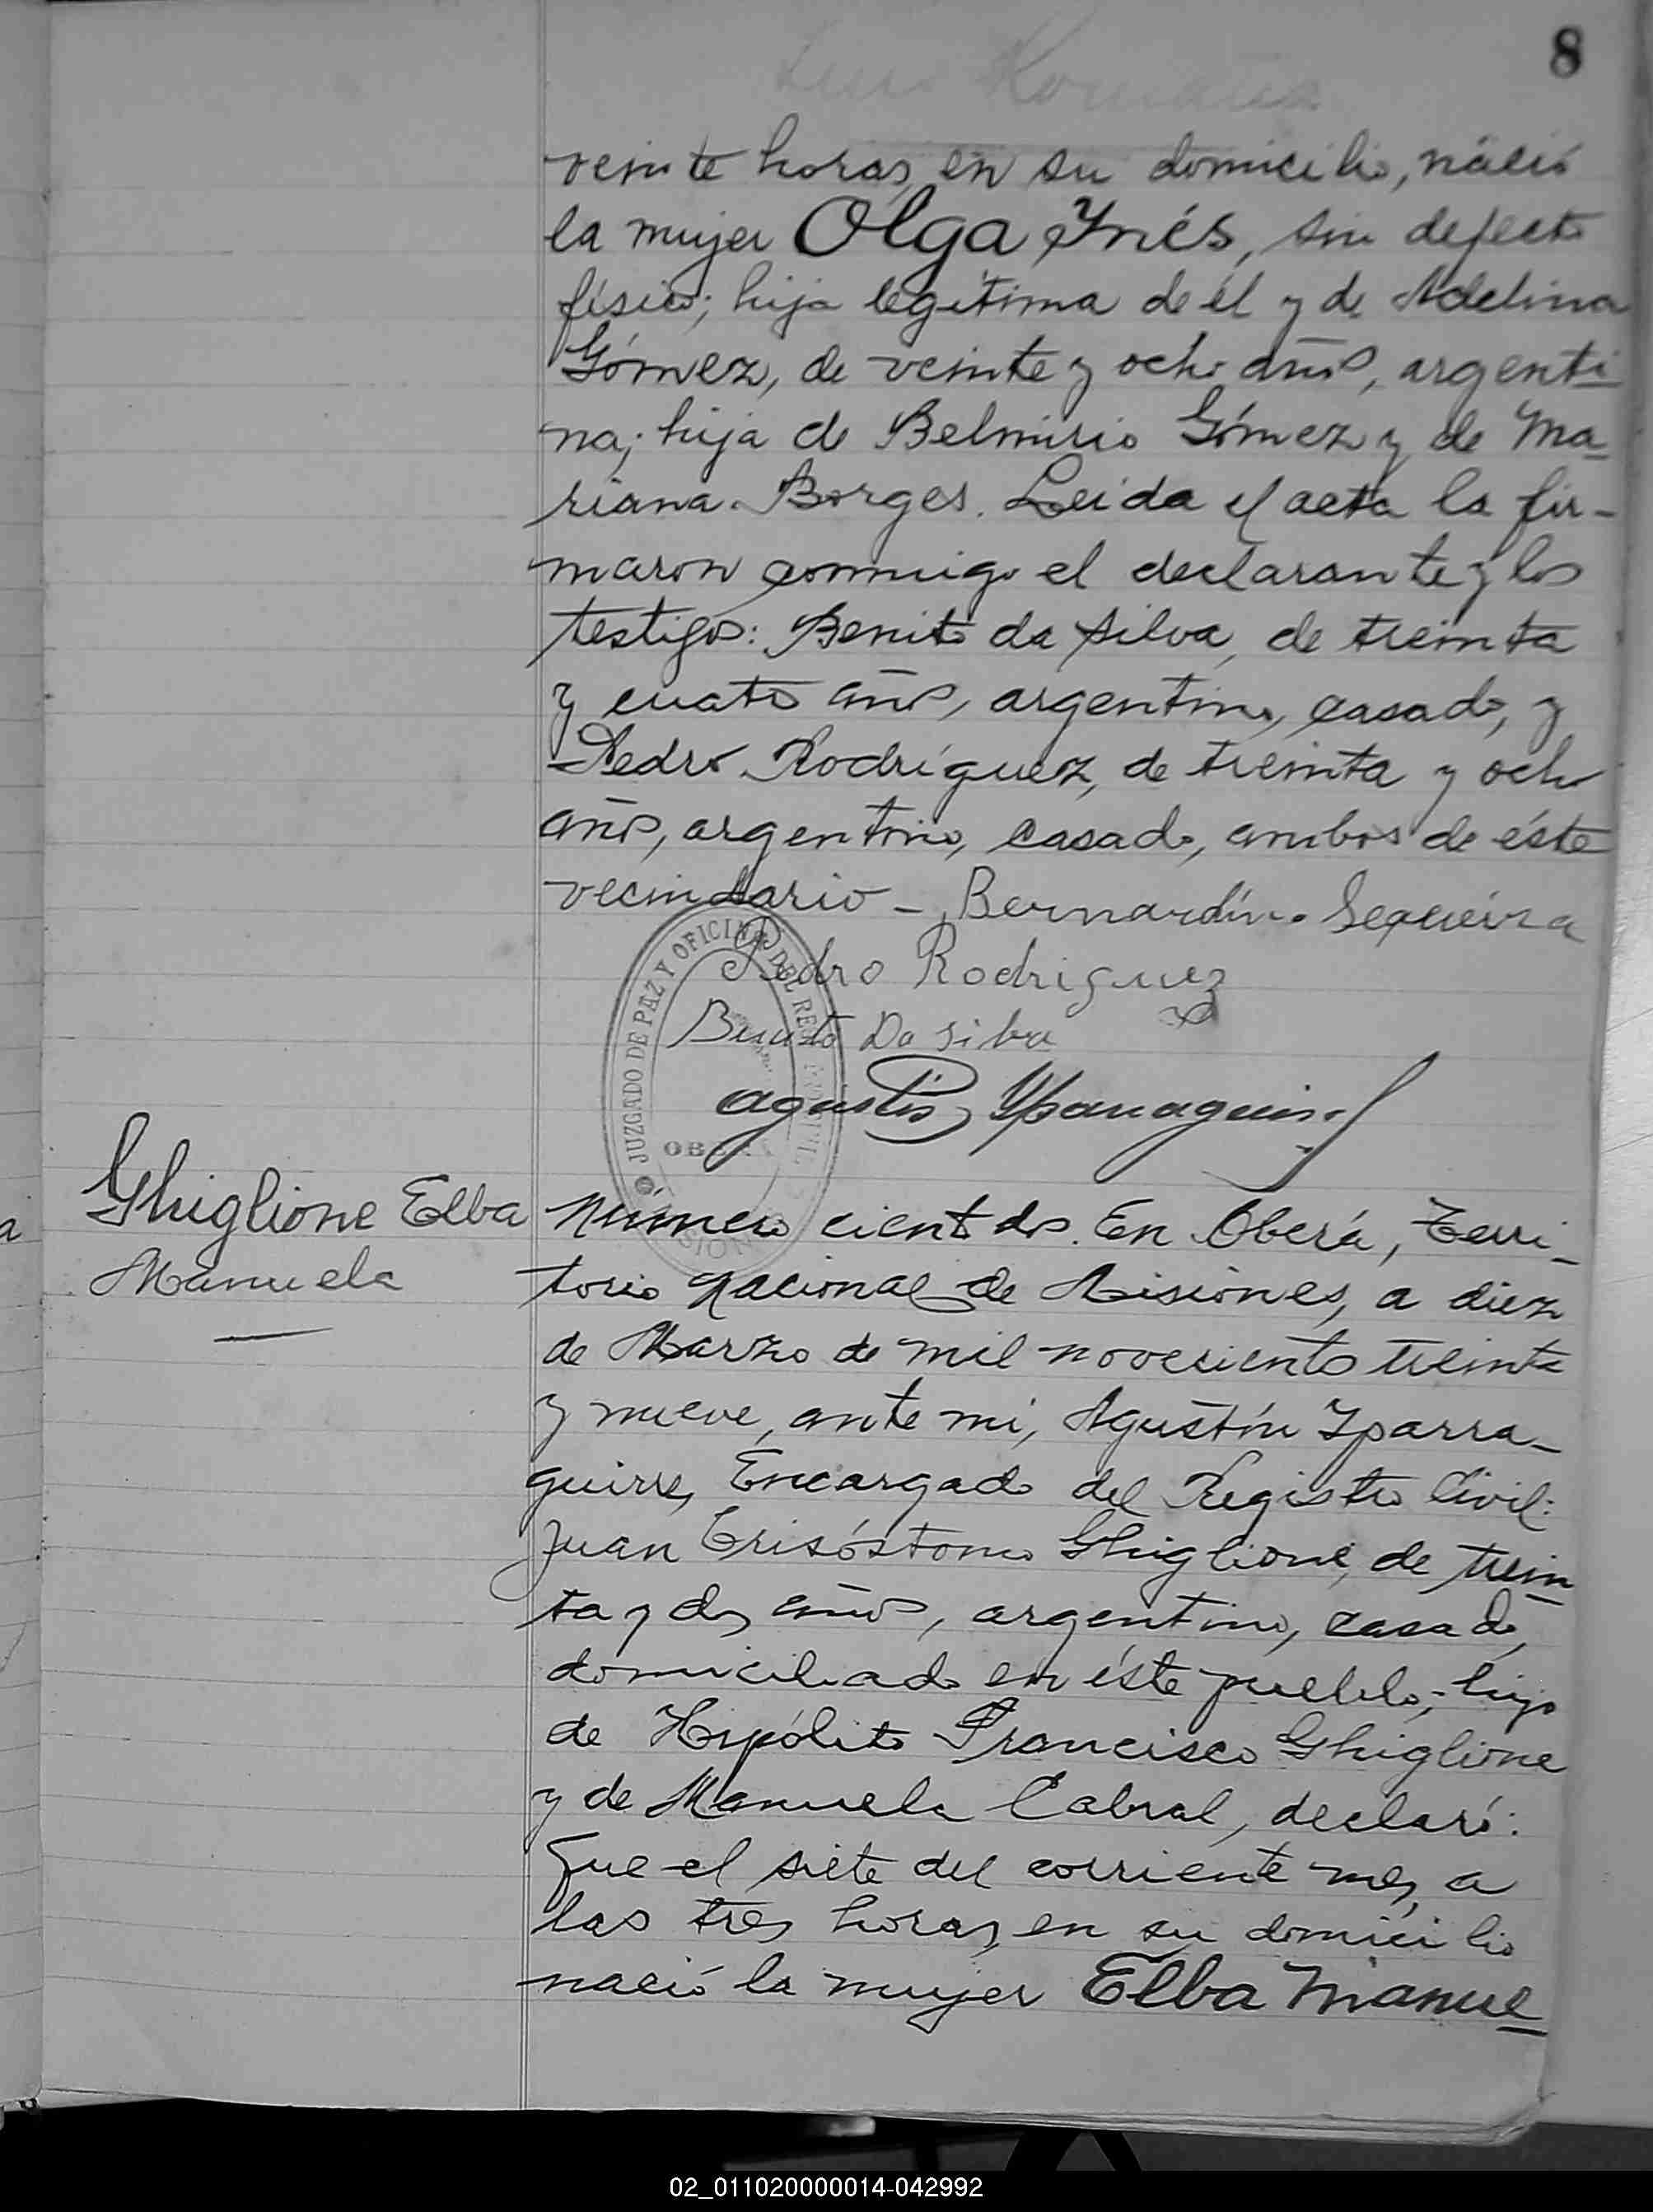 8
veinte horas, en su domicilio, nació
la mujer Olga Ynés, sin defecto
físico; hija legítima de él y de Adelina
Gómez, de veinte y ocho años, argenti-
na; hija de Belmirio Gómez y de Ma-
riana Borges. Leida el acta la fir-
maron conmigo el declarante y los
testigos: Benito da Silva, de treinta
y cuatro años, argentino, casado, y
Pedro Rodríguez, de treinta y ocho
años, argentino, casado, ambos de éste
vecindario - Bernardino Sequeira
Pedro Rodriguez
Benito Da Silva
Agustín Yparraguirre
JUZGADO DE PAZ Y OFICINA DEL REGISTRO CIVIL
OBERA
MISIONES
Ghiglione Elba
Manuela
Número ciento dos. En Oberá, Terri-
torio Nacional de Misiones, a diez
de Marzo de mil novecientos treinta
y nueve, ante mi, Agustín Yparra-
guirre, Encargado del Registro Civil:
Juan Crisóstomo Ghiglione, de trein-
ta y dos años, argentino, casado,
domiciliado en éste pueblo; hijo
de Hipólito Francisco Ghiglione
y de Manuela Cabral, declaró:
Que el siete del corriente mes, a
las tres horas, en su domicilio
nació la mujer Elba Manue-
02_011020000014-042992